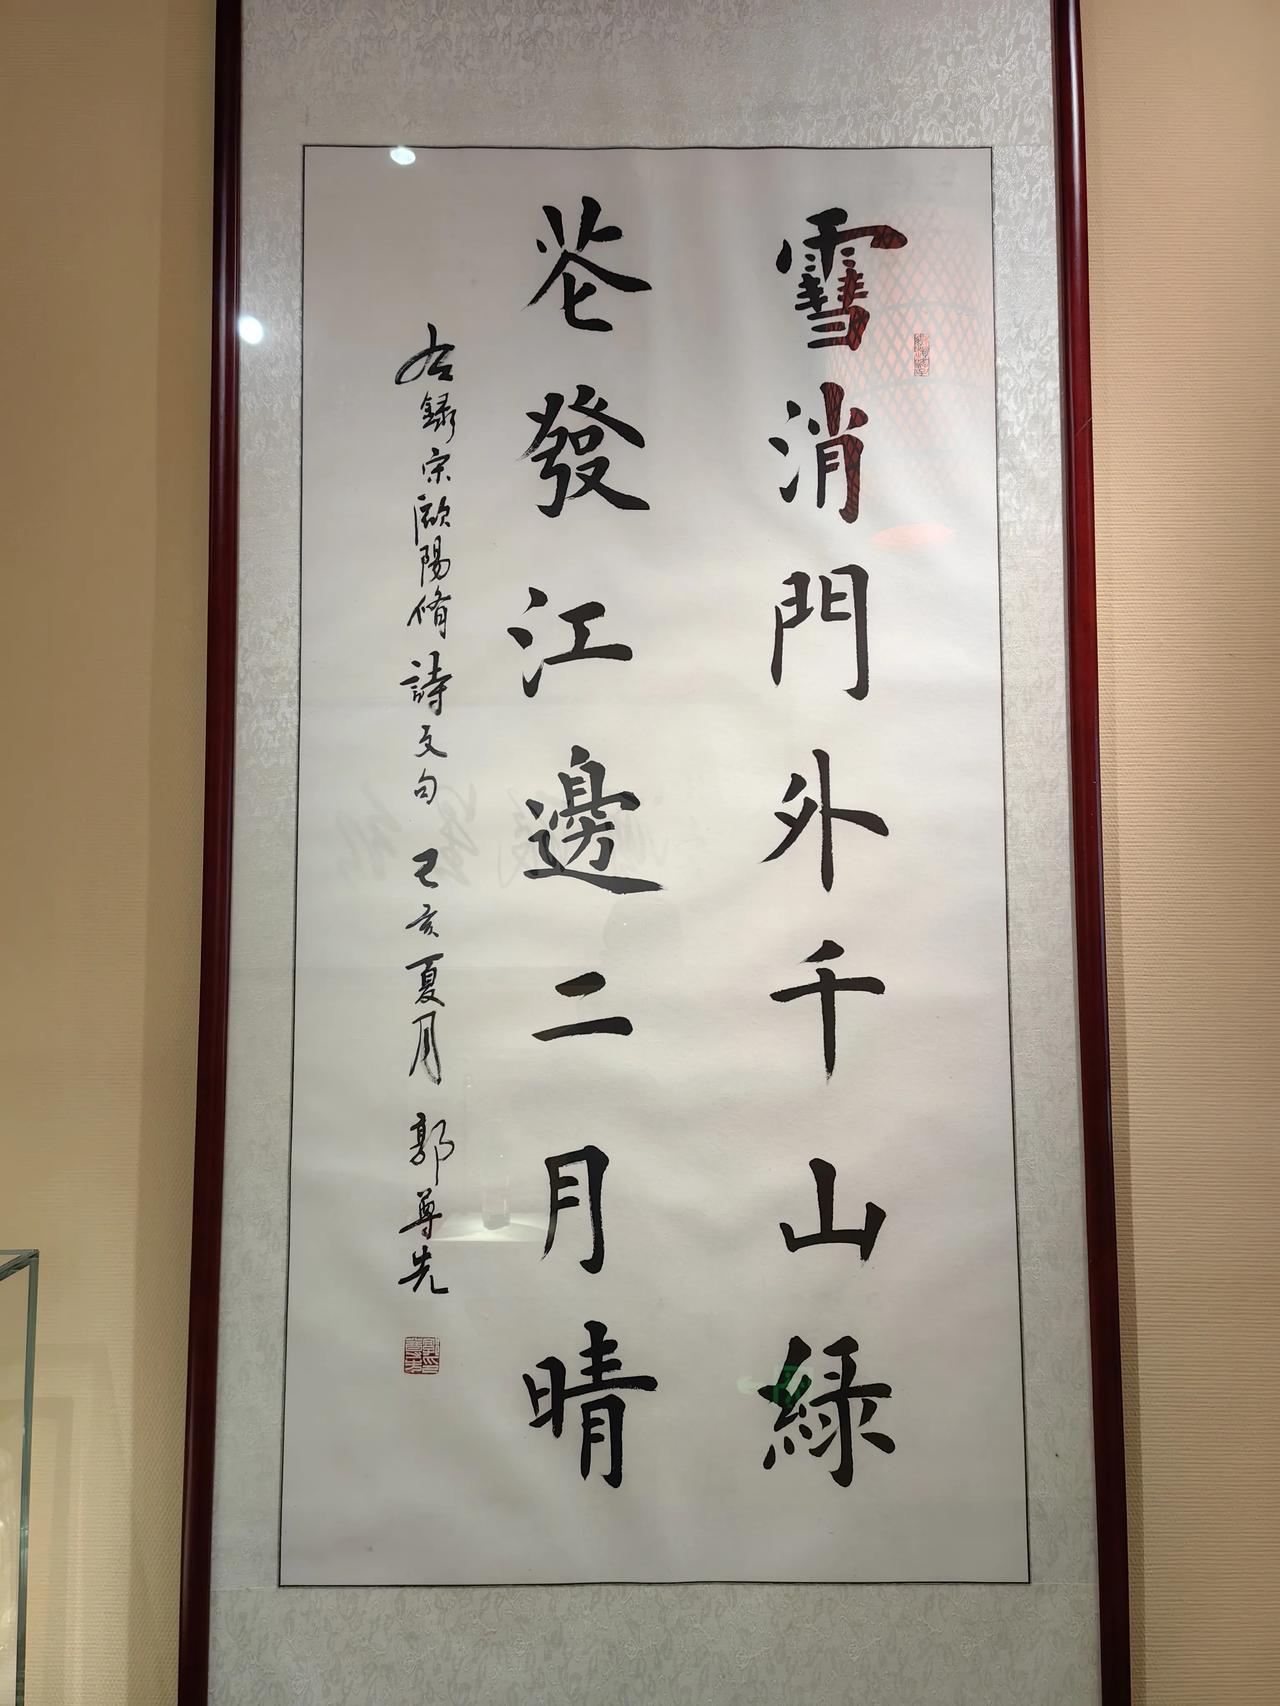 雪消門外千山綠
花發江邊二月晴
右錄宋歐陽脩詩文句 己亥夏月 郭尊先